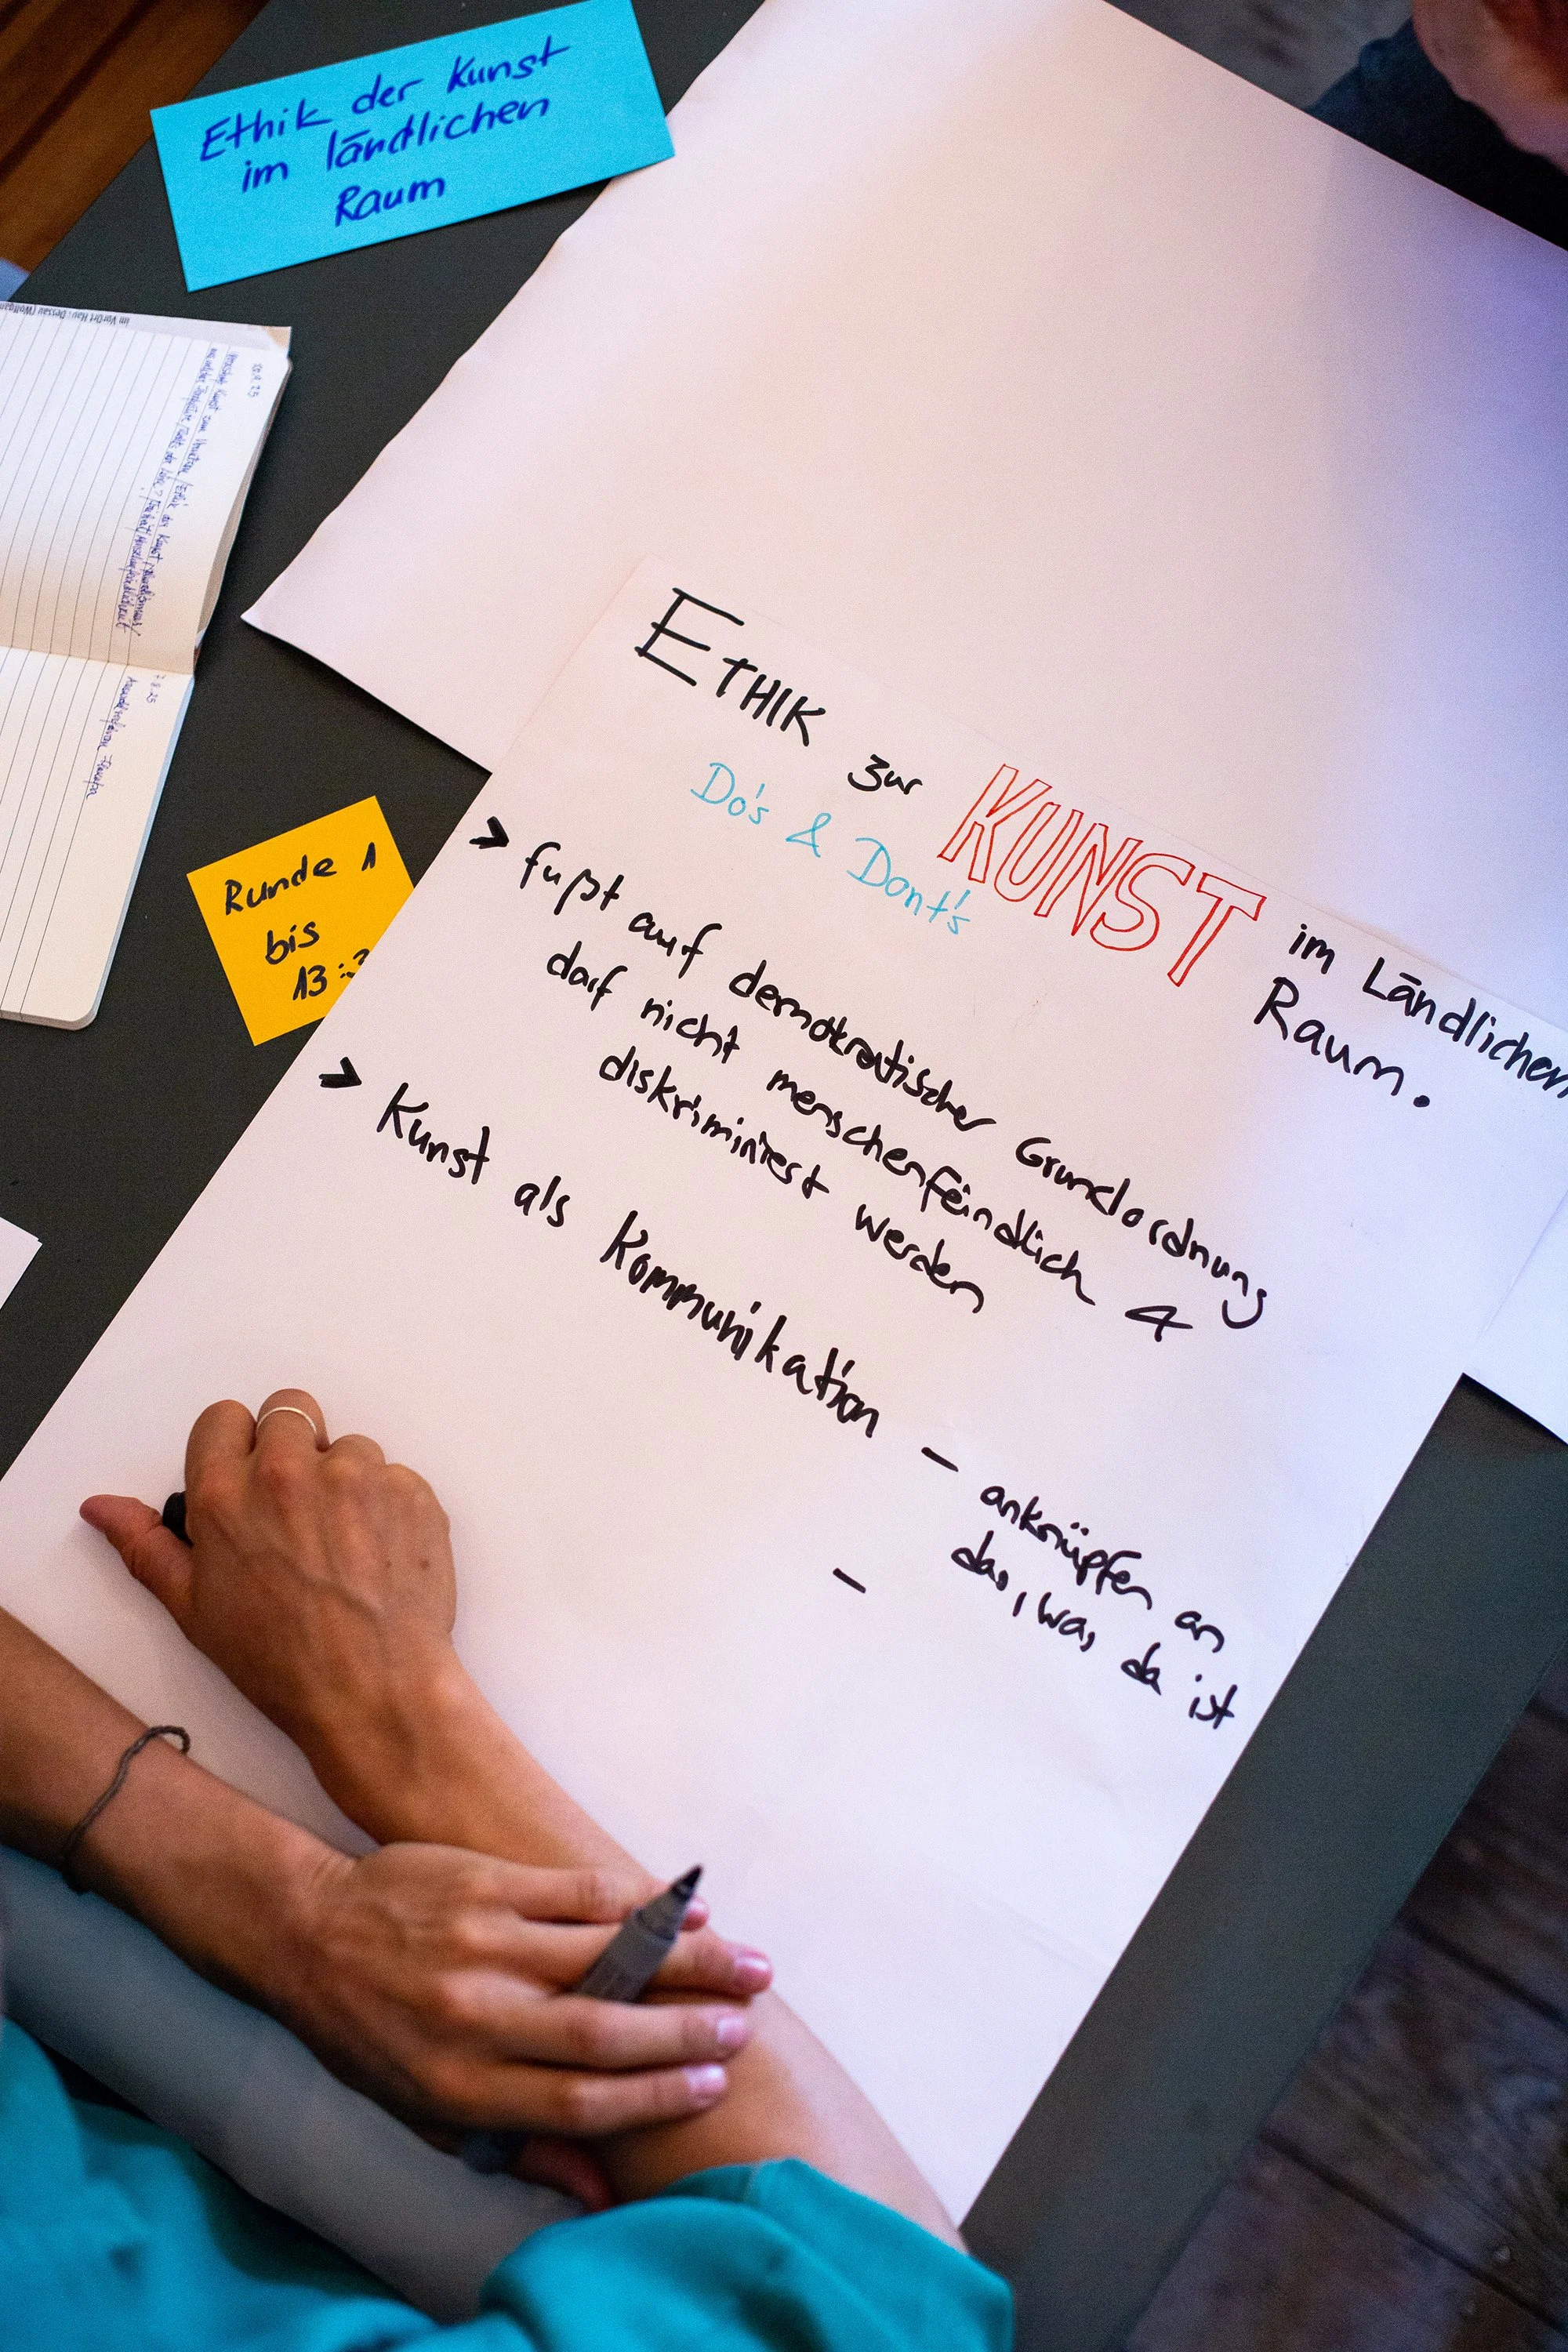 Ethik der Kunst
im ländlichen
Raum
ETHIK zur KUNST im Ländlichen
Raum.
Do's & Dont's
> fußt auf demokratischer Grundordnung
darf nicht menschenfeindlich &
diskriminiert werden
> Kunst als Kommunikation – anknüpfen an
das, was da ist
–
Runde 1
bis
13:3